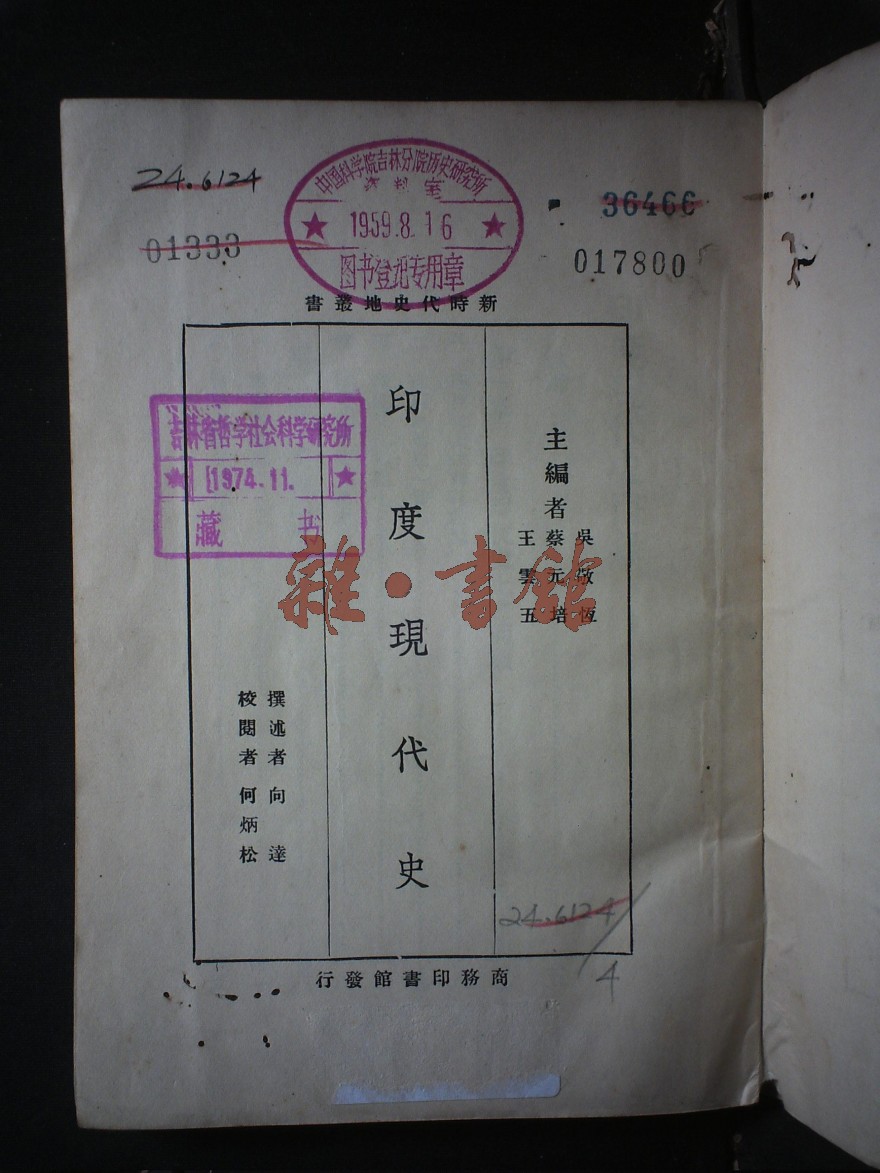 24.6124
中国科学院吉林分院历史研究所
资料室
★ 1959.8.16 ★
图书登记专用章
36466
01333
017800
新時代史地叢書
主編者
吳敬恆
蔡元培
王雲五
印度現代史
撰述者 向達
校閱者 何炳松
吉林省哲学社会科学研究所
★ 1974.11. ★
藏书
雜·書館
24.6124
4
商務印書館發行